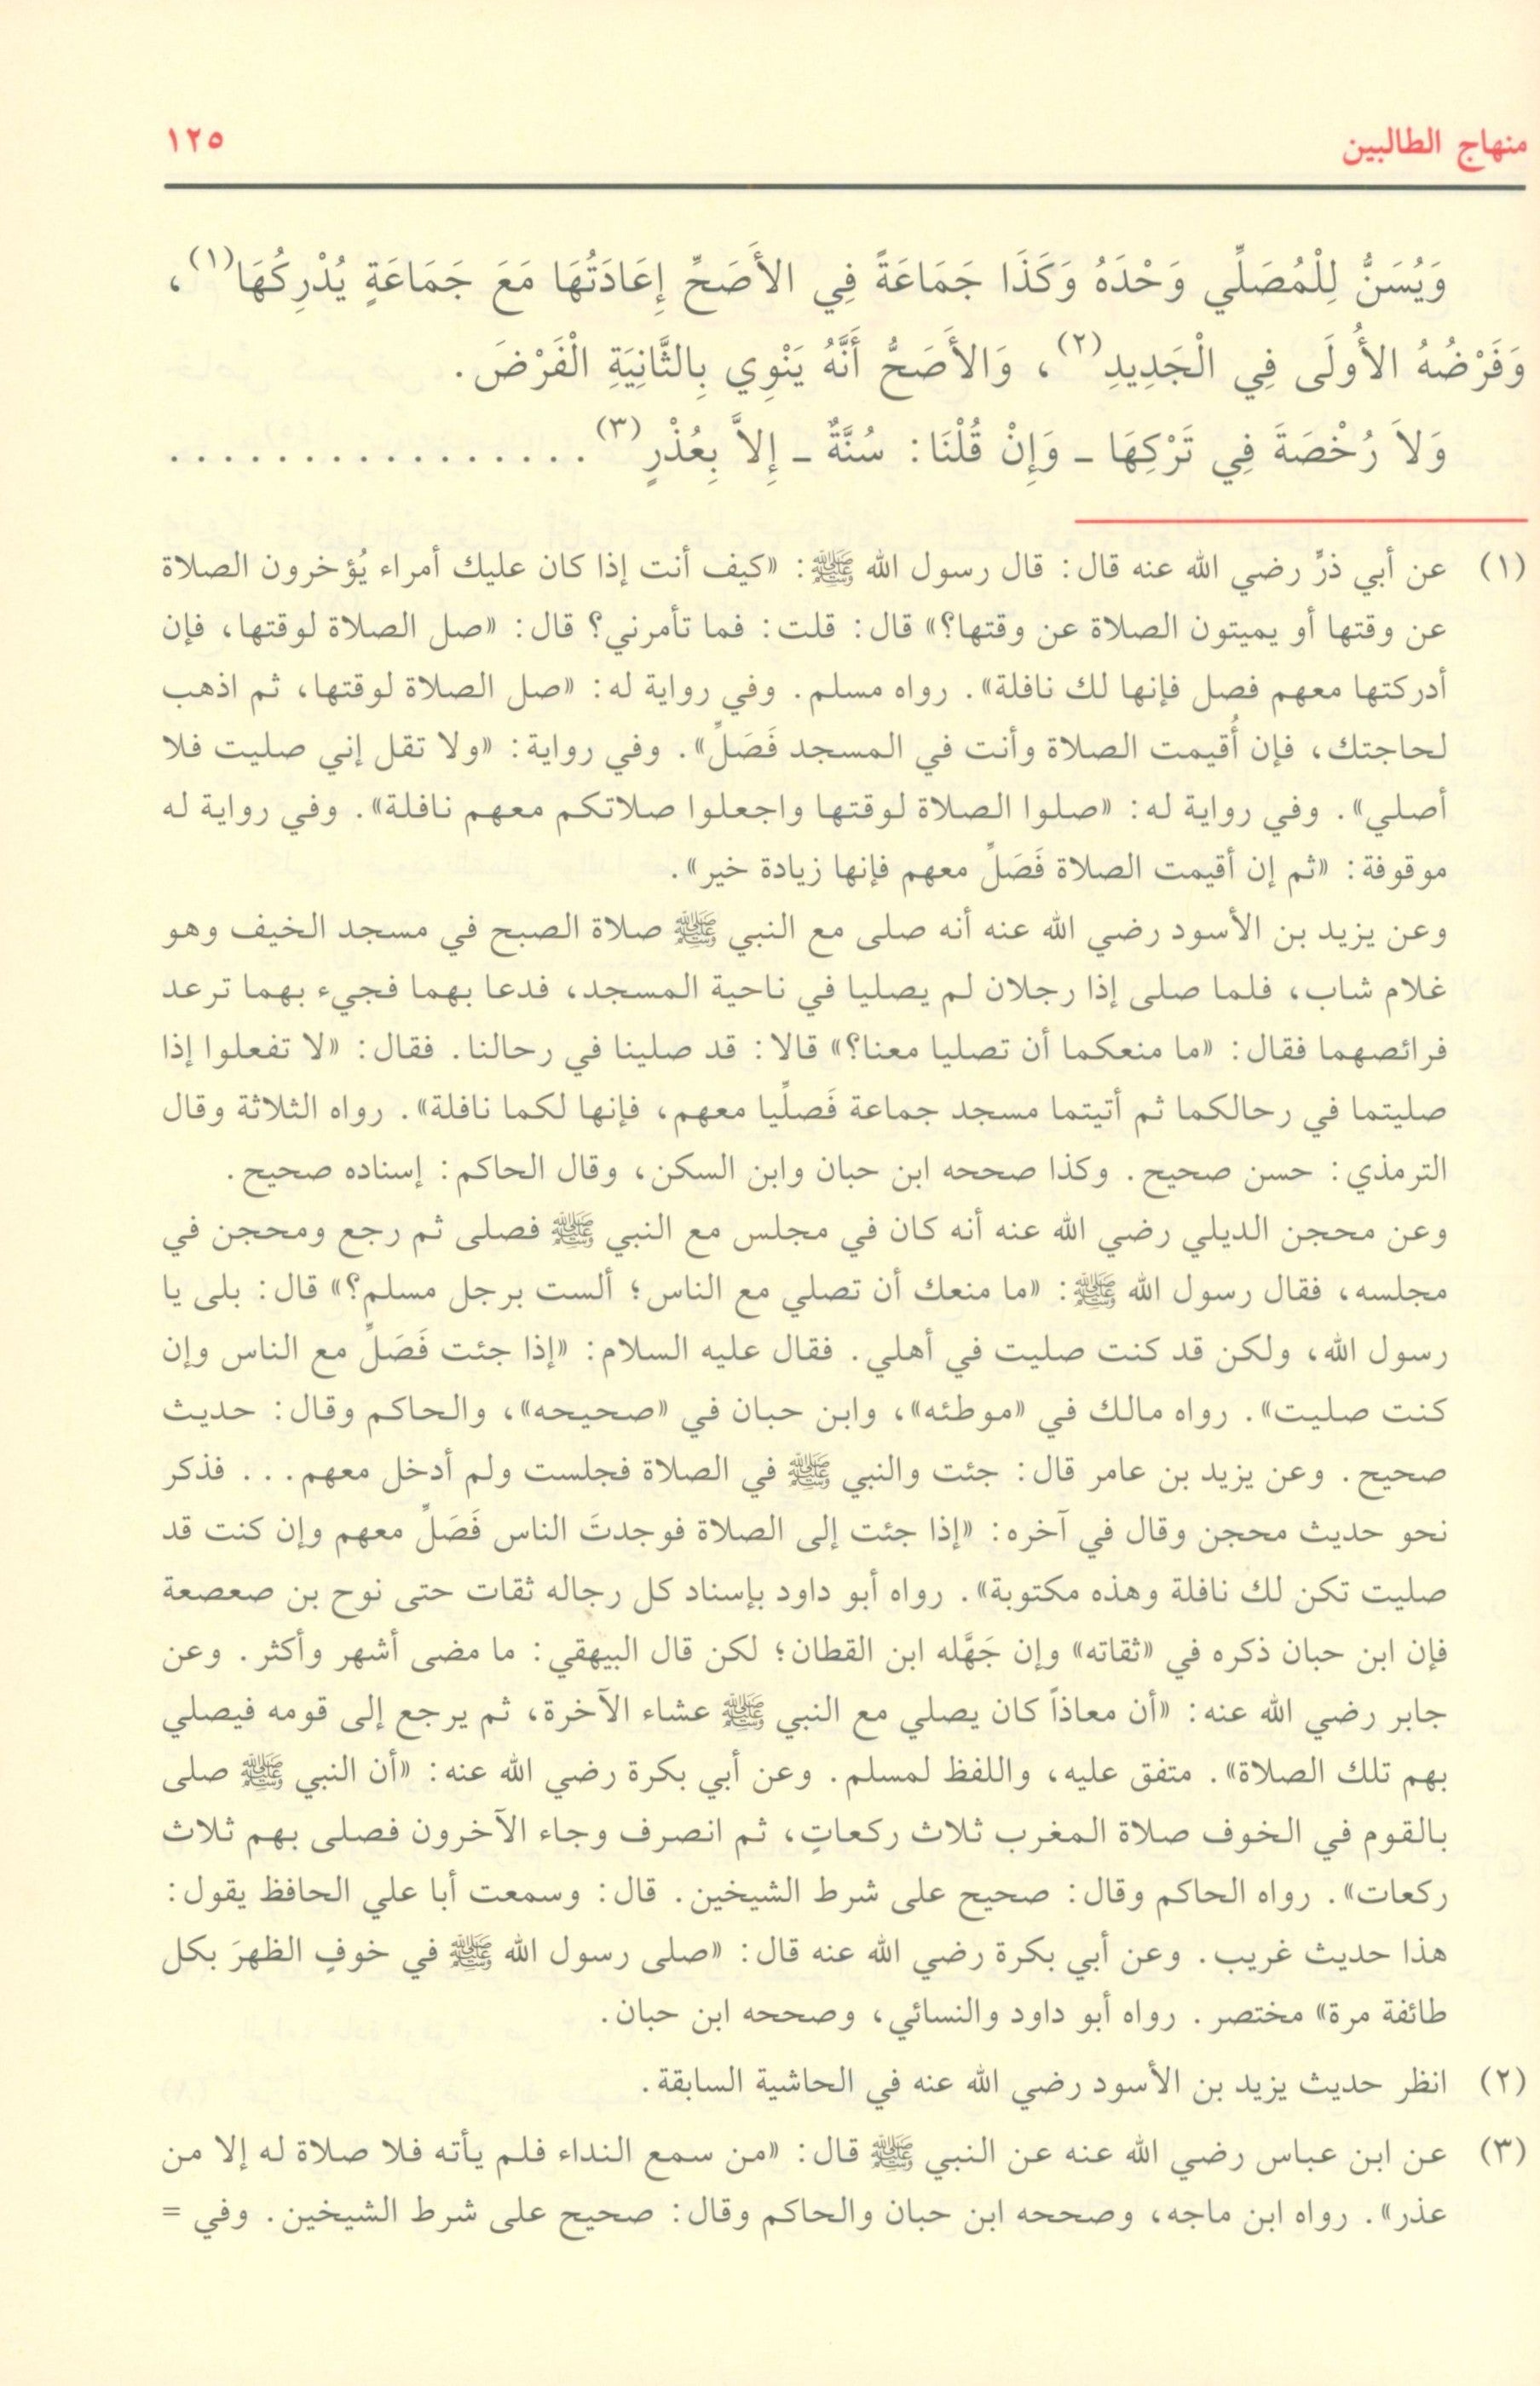 منهاج الطالبين ١٢٥
وَيُسَنُّ لِلْمُصَلِّي وَحْدَهُ وَكَذَا جَمَاعَةً فِي الأَصَحِّ إِعَادَتُهَا مَعَ جَمَاعَةٍ يُدْرِكُهَا(١)،
وَفَرْضُهُ الأُولَى فِي الْجَدِيدِ(٢)، وَالأَصَحُّ أَنَّهُ يَنْوِي بِالثَّانِيَةِ الْفَرْضَ.
وَلاَ رُخْصَةَ فِي تَرْكِهَا ـ وَإِنْ قُلْنَا: سُنَّةٌ ـ إِلاَّ بِعُذْرٍ(٣) . . . . . . . . . . . . . . . .
(١) عن أبي ذرٍّ رضي الله عنه قال: قال رسول الله ﷺ: «كيف أنت إذا كان عليك أمراء يُؤخرون الصلاة
عن وقتها أو يميتون الصلاة عن وقتها؟» قال: قلت: فما تأمرني؟ قال: «صل الصلاة لوقتها، فإن
أدركتها معهم فصل فإنها لك نافلة». رواه مسلم. وفي رواية له: «صل الصلاة لوقتها، ثم اذهب
لحاجتك، فإن أُقيمت الصلاة وأنت في المسجد فَصَلِّ». وفي رواية: «ولا تقل إني صليت فلا
أصلي». وفي رواية له: «صلوا الصلاة لوقتها واجعلوا صلاتكم معهم نافلة». وفي رواية له
موقوفة: «ثم إن أقيمت الصلاة فَصَلِّ معهم فإنها زيادة خير».
وعن يزيد بن الأسود رضي الله عنه أنه صلى مع النبي ﷺ صلاة الصبح في مسجد الخيف وهو
غلام شاب، فلما صلى إذا رجلان لم يصليا في ناحية المسجد، فدعا بهما فجيء بهما ترعد
فرائصهما فقال: «ما منعكما أن تصليا معنا؟» قالا: قد صلينا في رحالنا. فقال: «لا تفعلوا إذا
صليتما في رحالكما ثم أتيتما مسجد جماعة فَصلِّيا معهم، فإنها لكما نافلة». رواه الثلاثة وقال
الترمذي: حسن صحيح. وكذا صححه ابن حبان وابن السكن، وقال الحاكم: إسناده صحيح.
وعن محجن الديلي رضي الله عنه أنه كان في مجلس مع النبي ﷺ فصلى ثم رجع ومحجن في
مجلسه، فقال رسول الله ﷺ: «ما منعك أن تصلي مع الناس؛ ألست برجل مسلم؟» قال: بلى يا
رسول الله، ولكن قد كنت صليت في أهلي. فقال عليه السلام: «إذا جئت فَصَلِّ مع الناس وإن
كنت صليت». رواه مالك في «موطئه»، وابن حبان في «صحيحه»، والحاكم وقال: حديث
صحيح. وعن يزيد بن عامر قال: جئت والنبي ﷺ في الصلاة فجلست ولم أدخل معهم... فذكر
نحو حديث محجن وقال في آخره: «إذا جئت إلى الصلاة فوجدتَ الناس فَصَلِّ معهم وإن كنت قد
صليت تكن لك نافلة وهذه مكتوبة». رواه أبو داود بإسناد كل رجاله ثقات حتى نوح بن صعصعة
فإن ابن حبان ذكره في «ثقاته» وإن جَهَّله ابن القطان؛ لكن قال البيهقي: ما مضى أشهر وأكثر. وعن
جابر رضي الله عنه: «أن معاذاً كان يصلي مع النبي ﷺ عشاء الآخرة، ثم يرجع إلى قومه فيصلي
بهم تلك الصلاة». متفق عليه، واللفظ لمسلم. وعن أبي بكرة رضي الله عنه: «أن النبي ﷺ صلى
بالقوم في الخوف صلاة المغرب ثلاث ركعاتٍ، ثم انصرف وجاء الآخرون فصلى بهم ثلاث
ركعات». رواه الحاكم وقال: صحيح على شرط الشيخين. قال: وسمعت أبا علي الحافظ يقول:
هذا حديث غريب. وعن أبي بكرة رضي الله عنه قال: «صلى رسول الله ﷺ في خوفٍ الظهرَ بكل
طائفة مرة» مختصر. رواه أبو داود والنسائي، وصححه ابن حبان.
(٢) انظر حديث يزيد بن الأسود رضي الله عنه في الحاشية السابقة.
(٣) عن ابن عباس رضي الله عنه عن النبي ﷺ قال: «من سمع النداء فلم يأته فلا صلاة له إلا من
عذر». رواه ابن ماجه، وصححه ابن حبان والحاكم وقال: صحيح على شرط الشيخين. وفي =